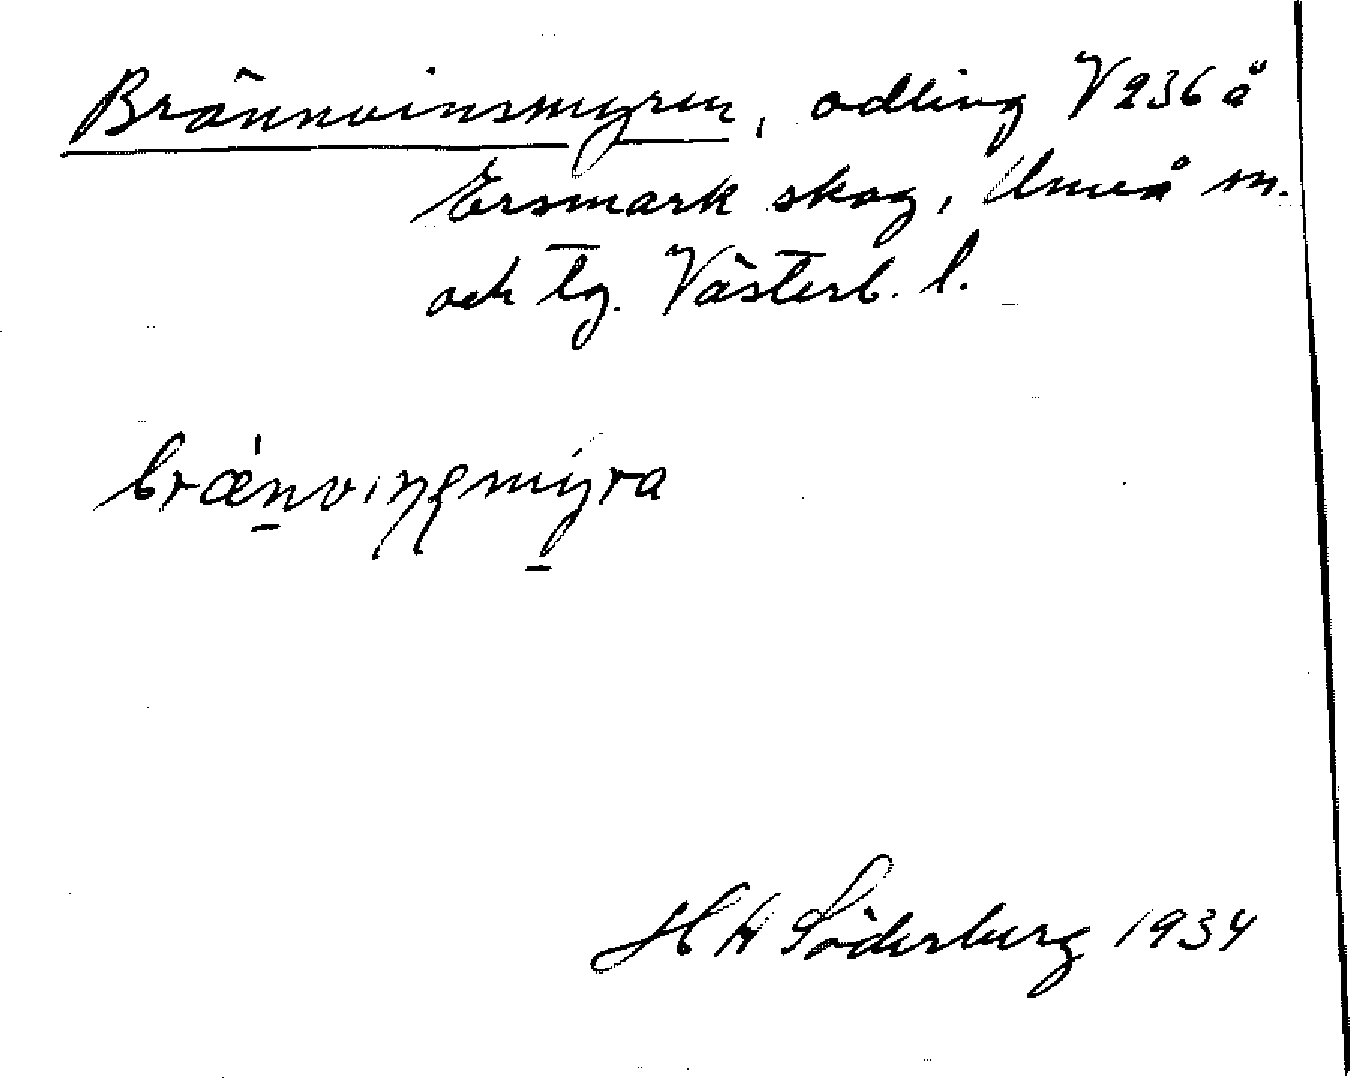 Brännvinsmyren, odling V 236 å
Ersmark skog, Umeå sn.
och tg. Västerb. l.
H W Söderberg 1934